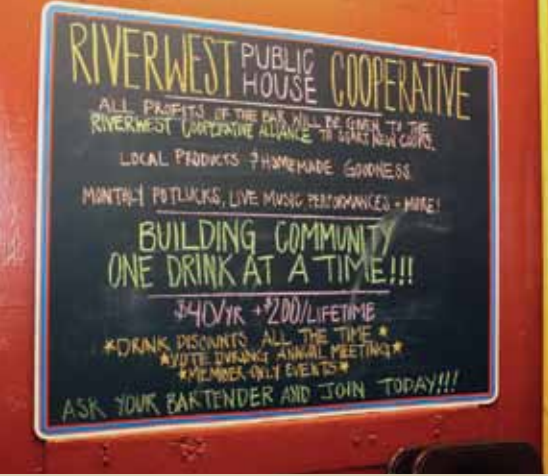 RIVERWEST PUBLIC HOUSE COOPERATIVE
ALL PROFITS OF THE BAR WILL BE GIVEN TO THE
RIVERWEST COOPERATIVE ALLIANCE TO START NEW COOPS.
LOCAL PRODUCTS & HOMEMADE GOODNESS.
MONTHLY POTLUCKS, LIVE MUSIC PERFORMANCES + MORE!
BUILDING COMMUNITY
ONE DRINK AT A TIME!!!
$40/YR + $200/LIFETIME
*DRINK DISCOUNTS ALL THE TIME*
*VOTE DURING ANNUAL MEETING*
*MEMBER ONLY EVENTS*
ASK YOUR BARTENDER AND JOIN TODAY!!!